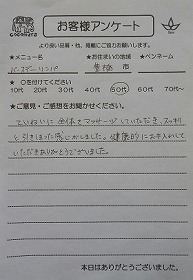 お客様アンケート
より良い品質・技、発展にご協力お願いします。
★メニュー名 ★お住まいの地域 ★ペンネーム
豊橋 市
★ ○を付けてください
10代 20代 30代 40代 50代 60代 70代~
★ご意見・ご感想をお聞かせください。
ていねいに全体をマッサージしていただき、スッキリ
と引きしまった感じがしました。健康的にお手入れして
いただきありがとうございました。
本日はありがとうございました。